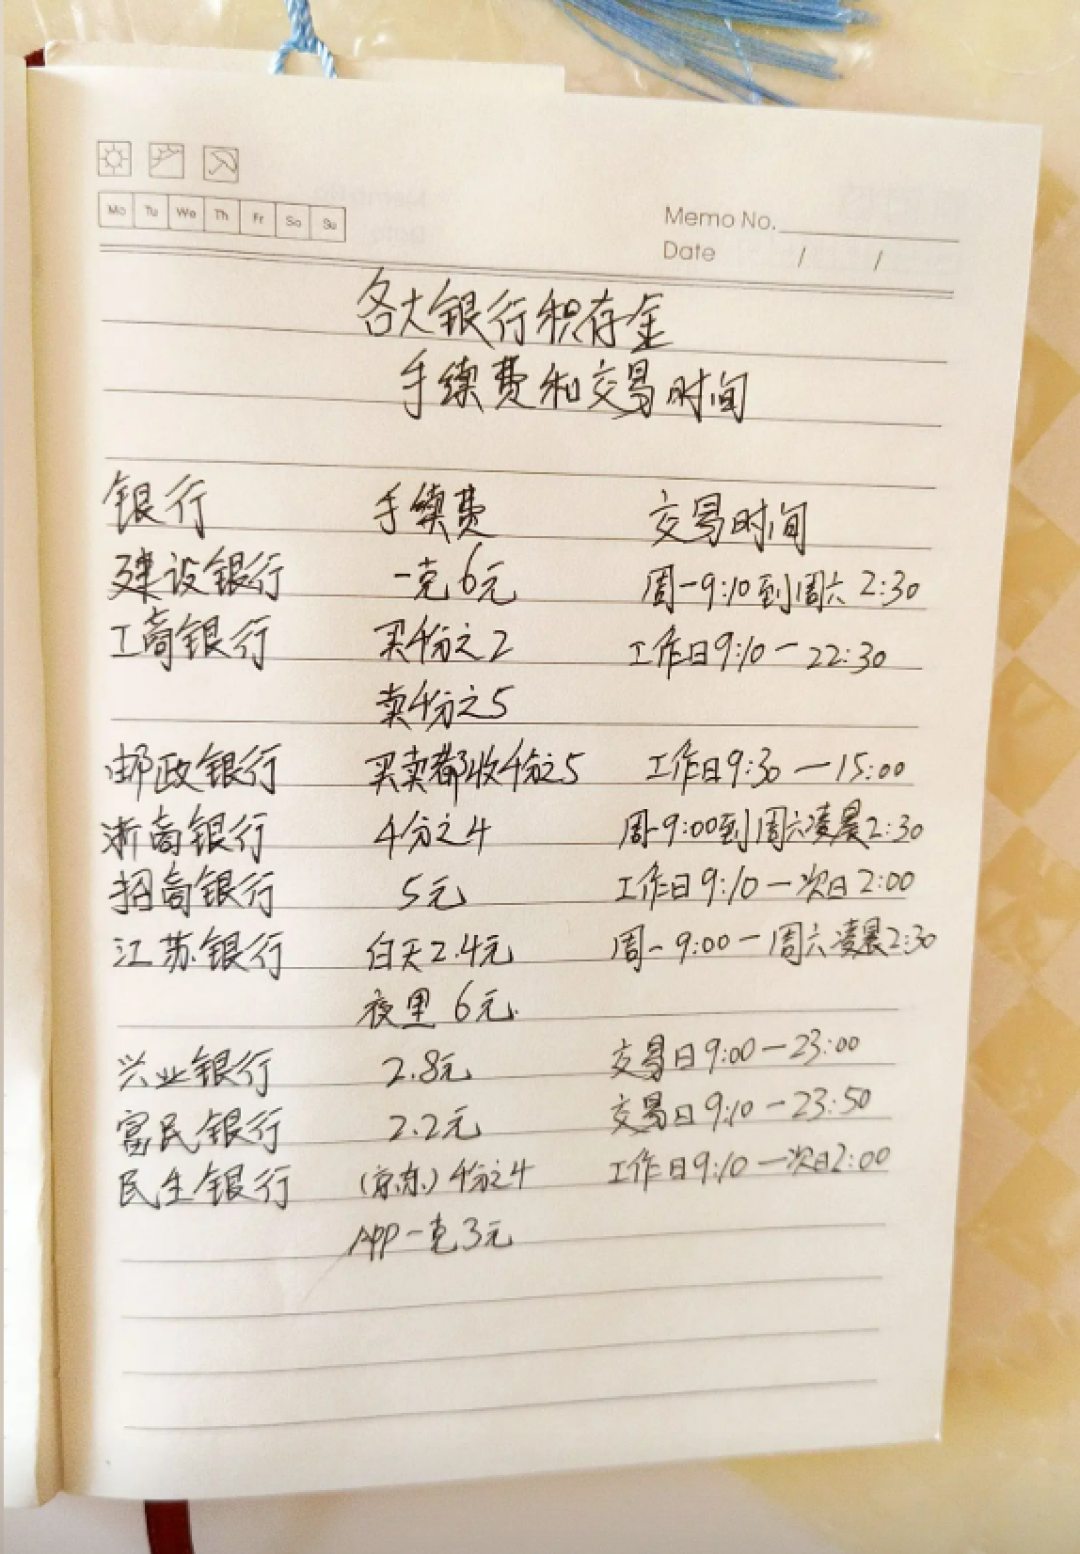 Mo Tu We Th Fr Sa Su
Memo No.
Date / /
各大银行积存金
手续费和交易时间
银行 手续费 交易时间
建设银行 一克6元 周一9:10到周六2:30
工商银行 买4分之2 工作日9:10一22:30
卖4分之5
邮政银行 买卖都收4分之5 工作日9:30一15:00
浙商银行 4分之4 周一9:00到周六凌晨2:30
招商银行 5元 工作日9:10一次日2:00
江苏银行 白天2.4元 周一9:00一周六凌晨2:30
夜里6元
兴业银行 2.8元 交易日9:00一23:00
富民银行 2.2元 交易日9:10一23:50
民生银行 (京东)4分之4 工作日9:10一次日2:00
APP一克3元